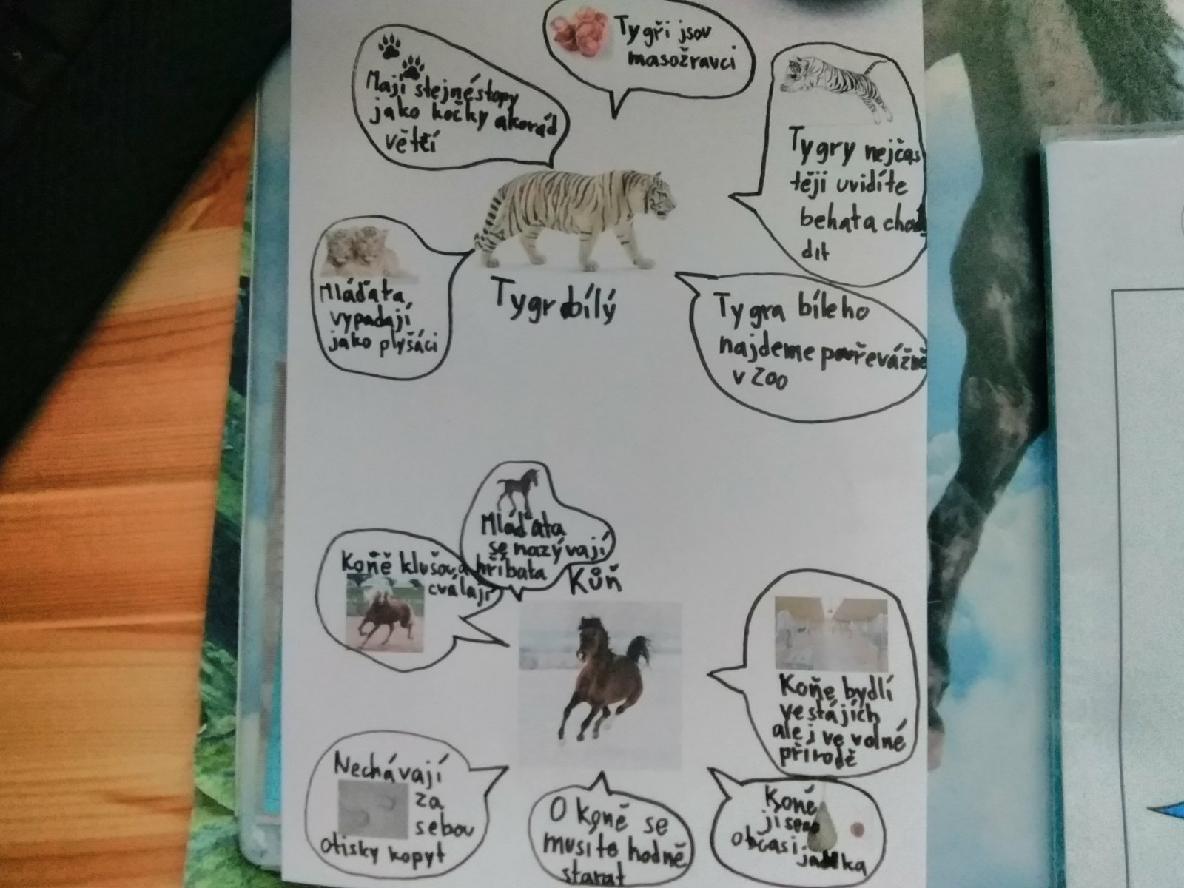 Mají stejné stopy
jako kočky akorád
větčí
Tygři jsou
masožravci
Tygry nejčas
těji uvidíte
behat a chod
dit
Mláďata
vypadají
jako plyšáci
Tygr bílý
Tygra bíleho
najdeme převážně
v zoo
Mláďata
se nazývají
hříbata
Koně klušou a
cválají
Kůň
Koňe bydlí
ve stájích
ale j ve volné
přírodě
Nechávají
za
sebou
otisky kopyt
O koně se
musíte hodně
starat
Koně
jí seno
občas i
jablka